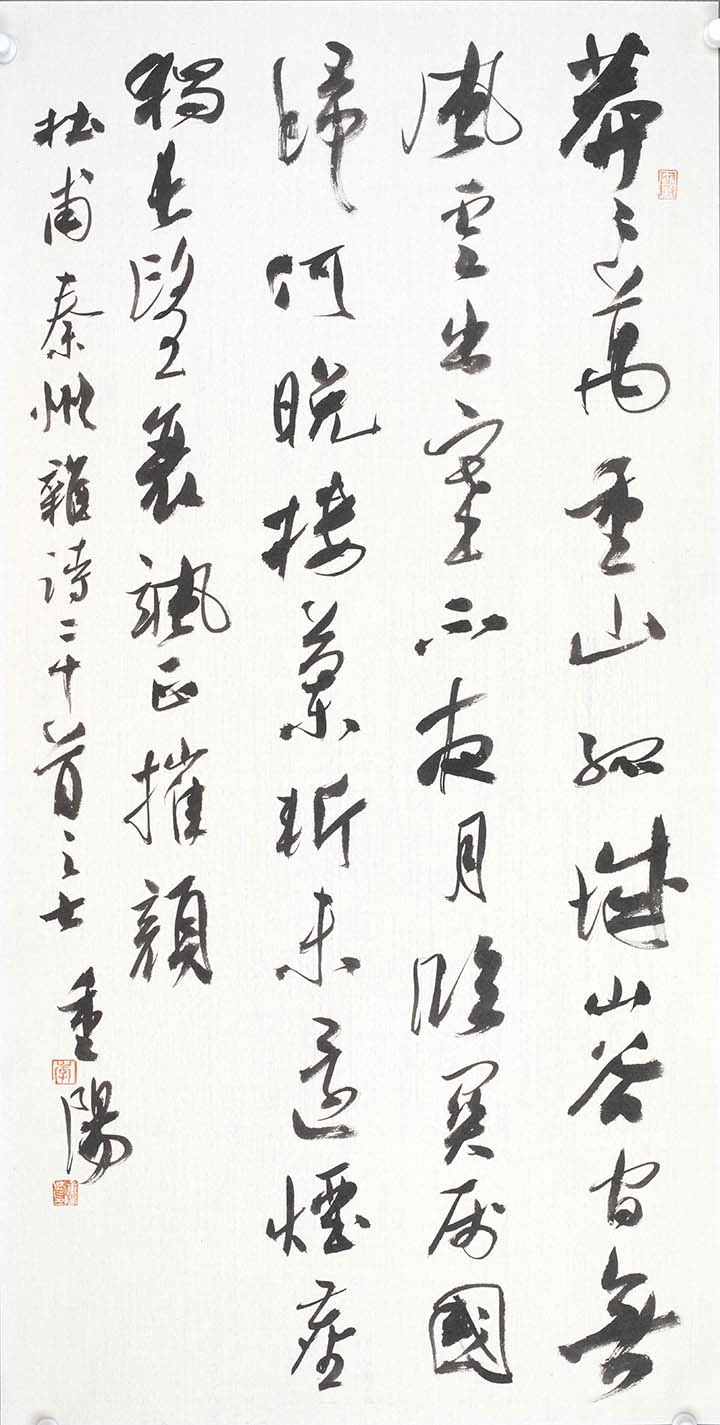 莽々萬重山孤城山谷間無
風雲出塞不夜月臨關屬國
歸何晚樓蘭斬未還煙塵
獨長望衰颯正摧顏
杜甫秦州雜詩二十首之七 重陽